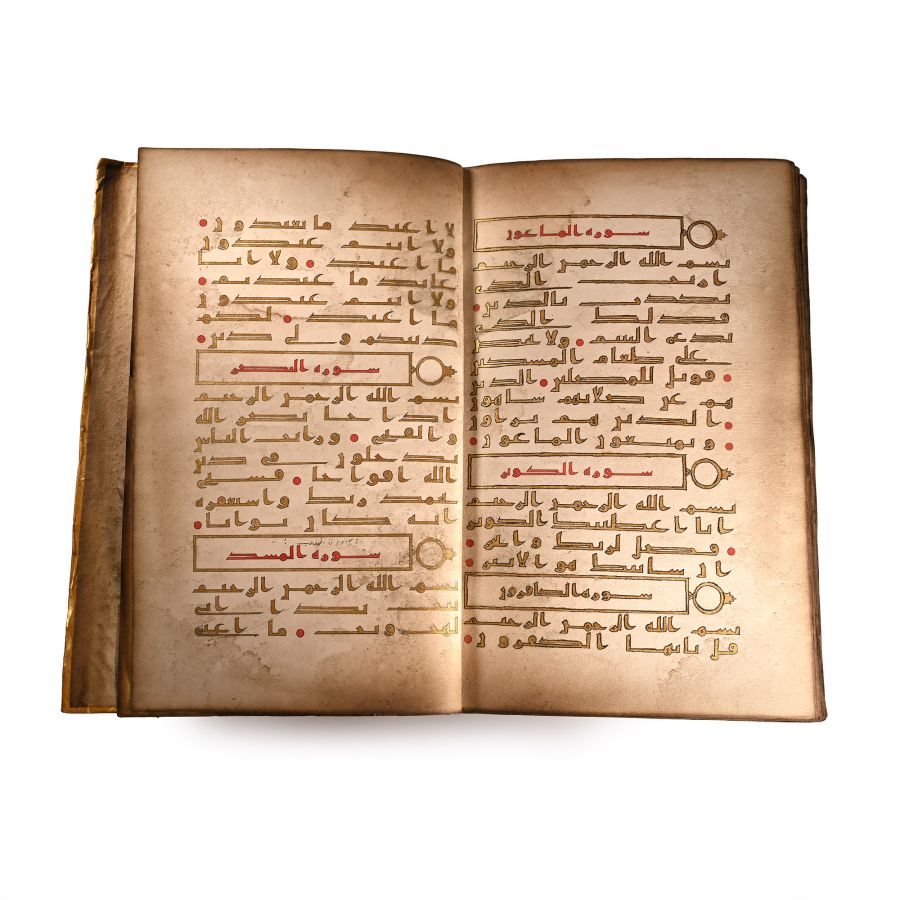 سوره الماعون
بسم الله الرحمن الرحيم
اريت الذي
يكذب بالدين
فذلك الذي
يدع اليتيم ولا يحض
على طعام المسكين
فويل للمصلين الذين
هم عن صلاتهم ساهون
الذين هم يراون
ويمنعون الماعون
سوره الكوثر
بسم الله الرحمن الرحيم
انا اعطينك الكوثر
فصل لربك وانحر
ان شانيك هو الابتر
سوره الكافرون
بسم الله الرحمن الرحيم
قل يايها الكفرون
لا اعبد ما تعبدون
ولا انتم عبدون
ما اعبد ولا انا
عابد ما عبدتم
ولا انتم عبدون
ما اعبد لكم
دينكم ولي دين
سوره النصر
بسم الله الرحمن الرحيم
اذا جا نصر الله
والفتح ورايت الناس
يدخلون في دين
الله افواجا فسبح
بحمد ربك واستغفره
انه كان توابا
سوره المسد
بسم الله الرحمن الرحيم
تبت يدا ابي
لهب وتب ما اغنى